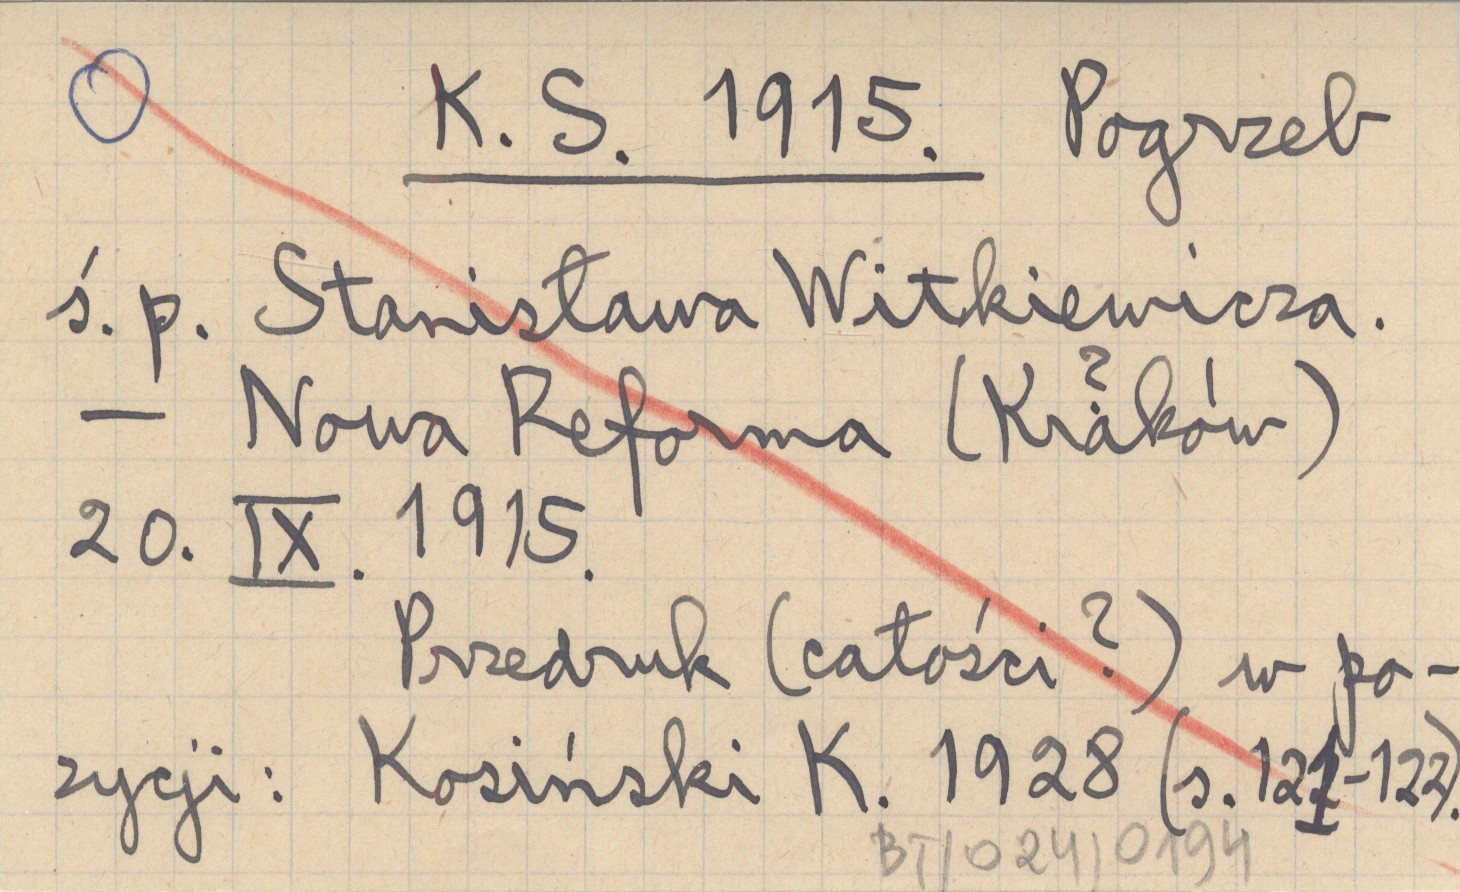 K. S. 1915. Pogrzeb
ś. p. Stanisława Witkiewicza.
— Nowa Reforma (Kraków)
?
20. IX. 1915.
Przedruk (całości?) w po-
zycji: Kosiński K. 1928 (s. 121-122).
BT/024/0194